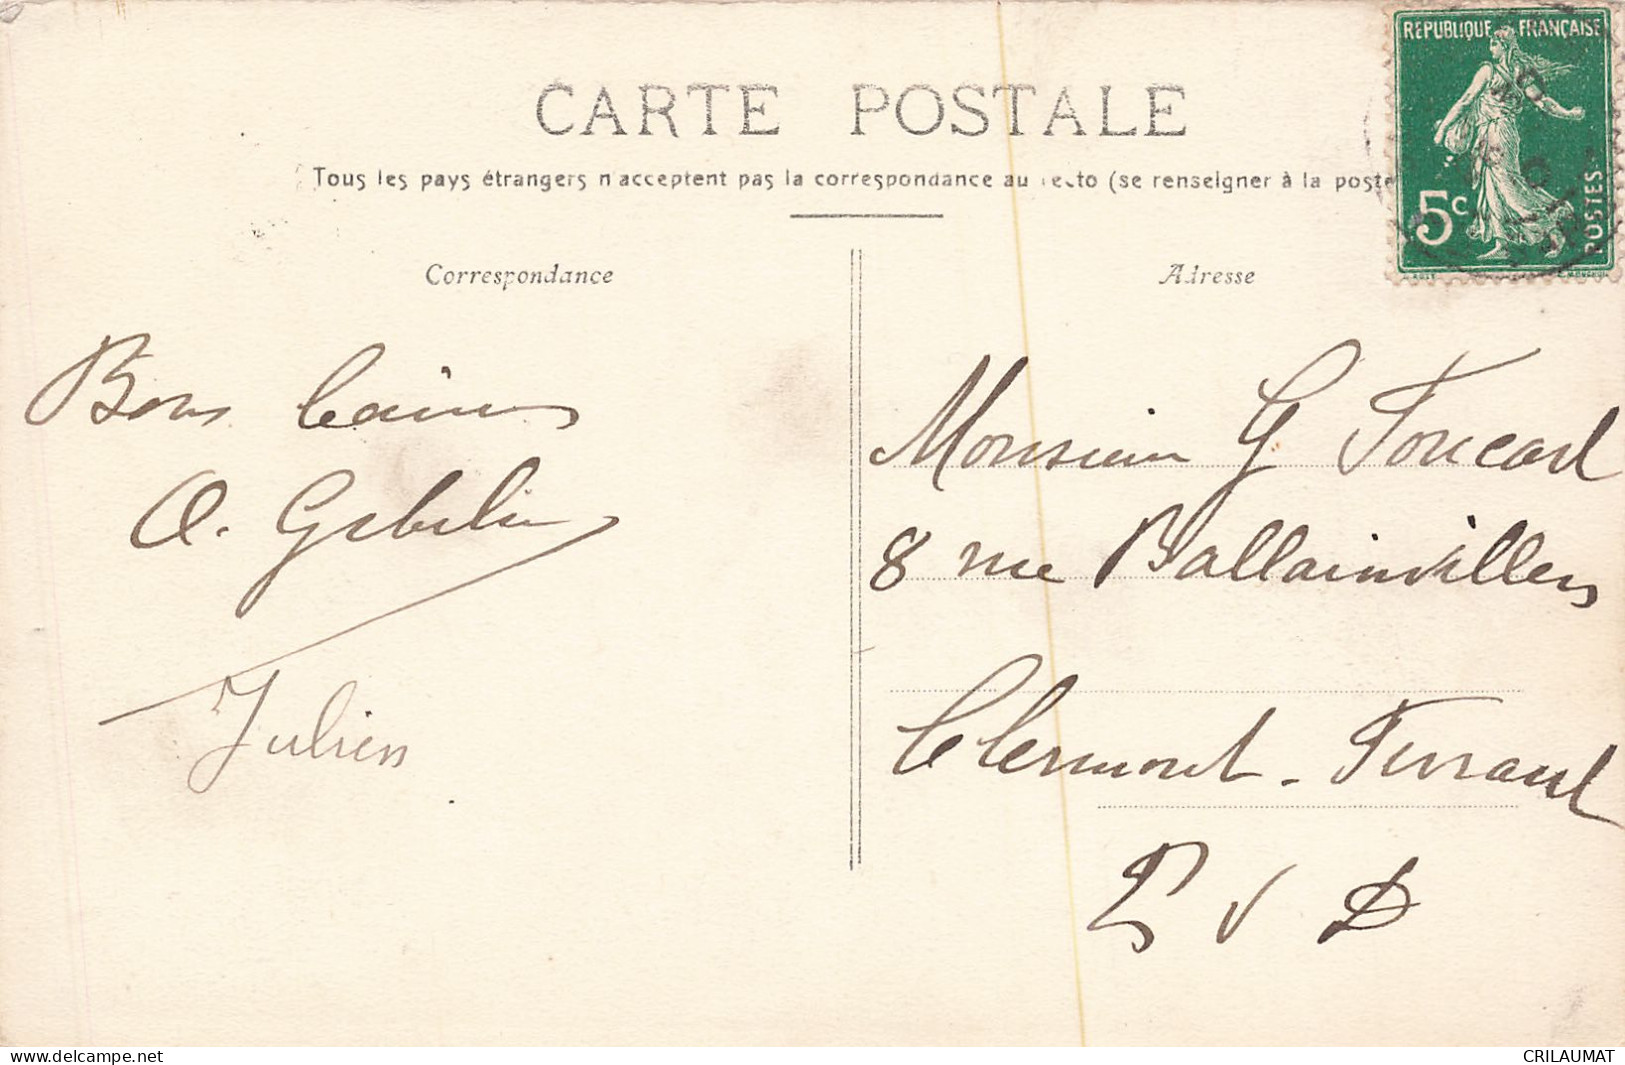 CARTE POSTALE
Tous les pays étrangers n'acceptent pas la correspondance au recto (se renseigner à la poste
REPUBLIQUE FRANÇAISE
5c
POSTES
Correspondance
Adresse
Bons
Julien
Monsieur G Foucard
8 rue Ballainvillers
Clermont-Ferrand
P d D
Delcampe.net
CRILAUMAT